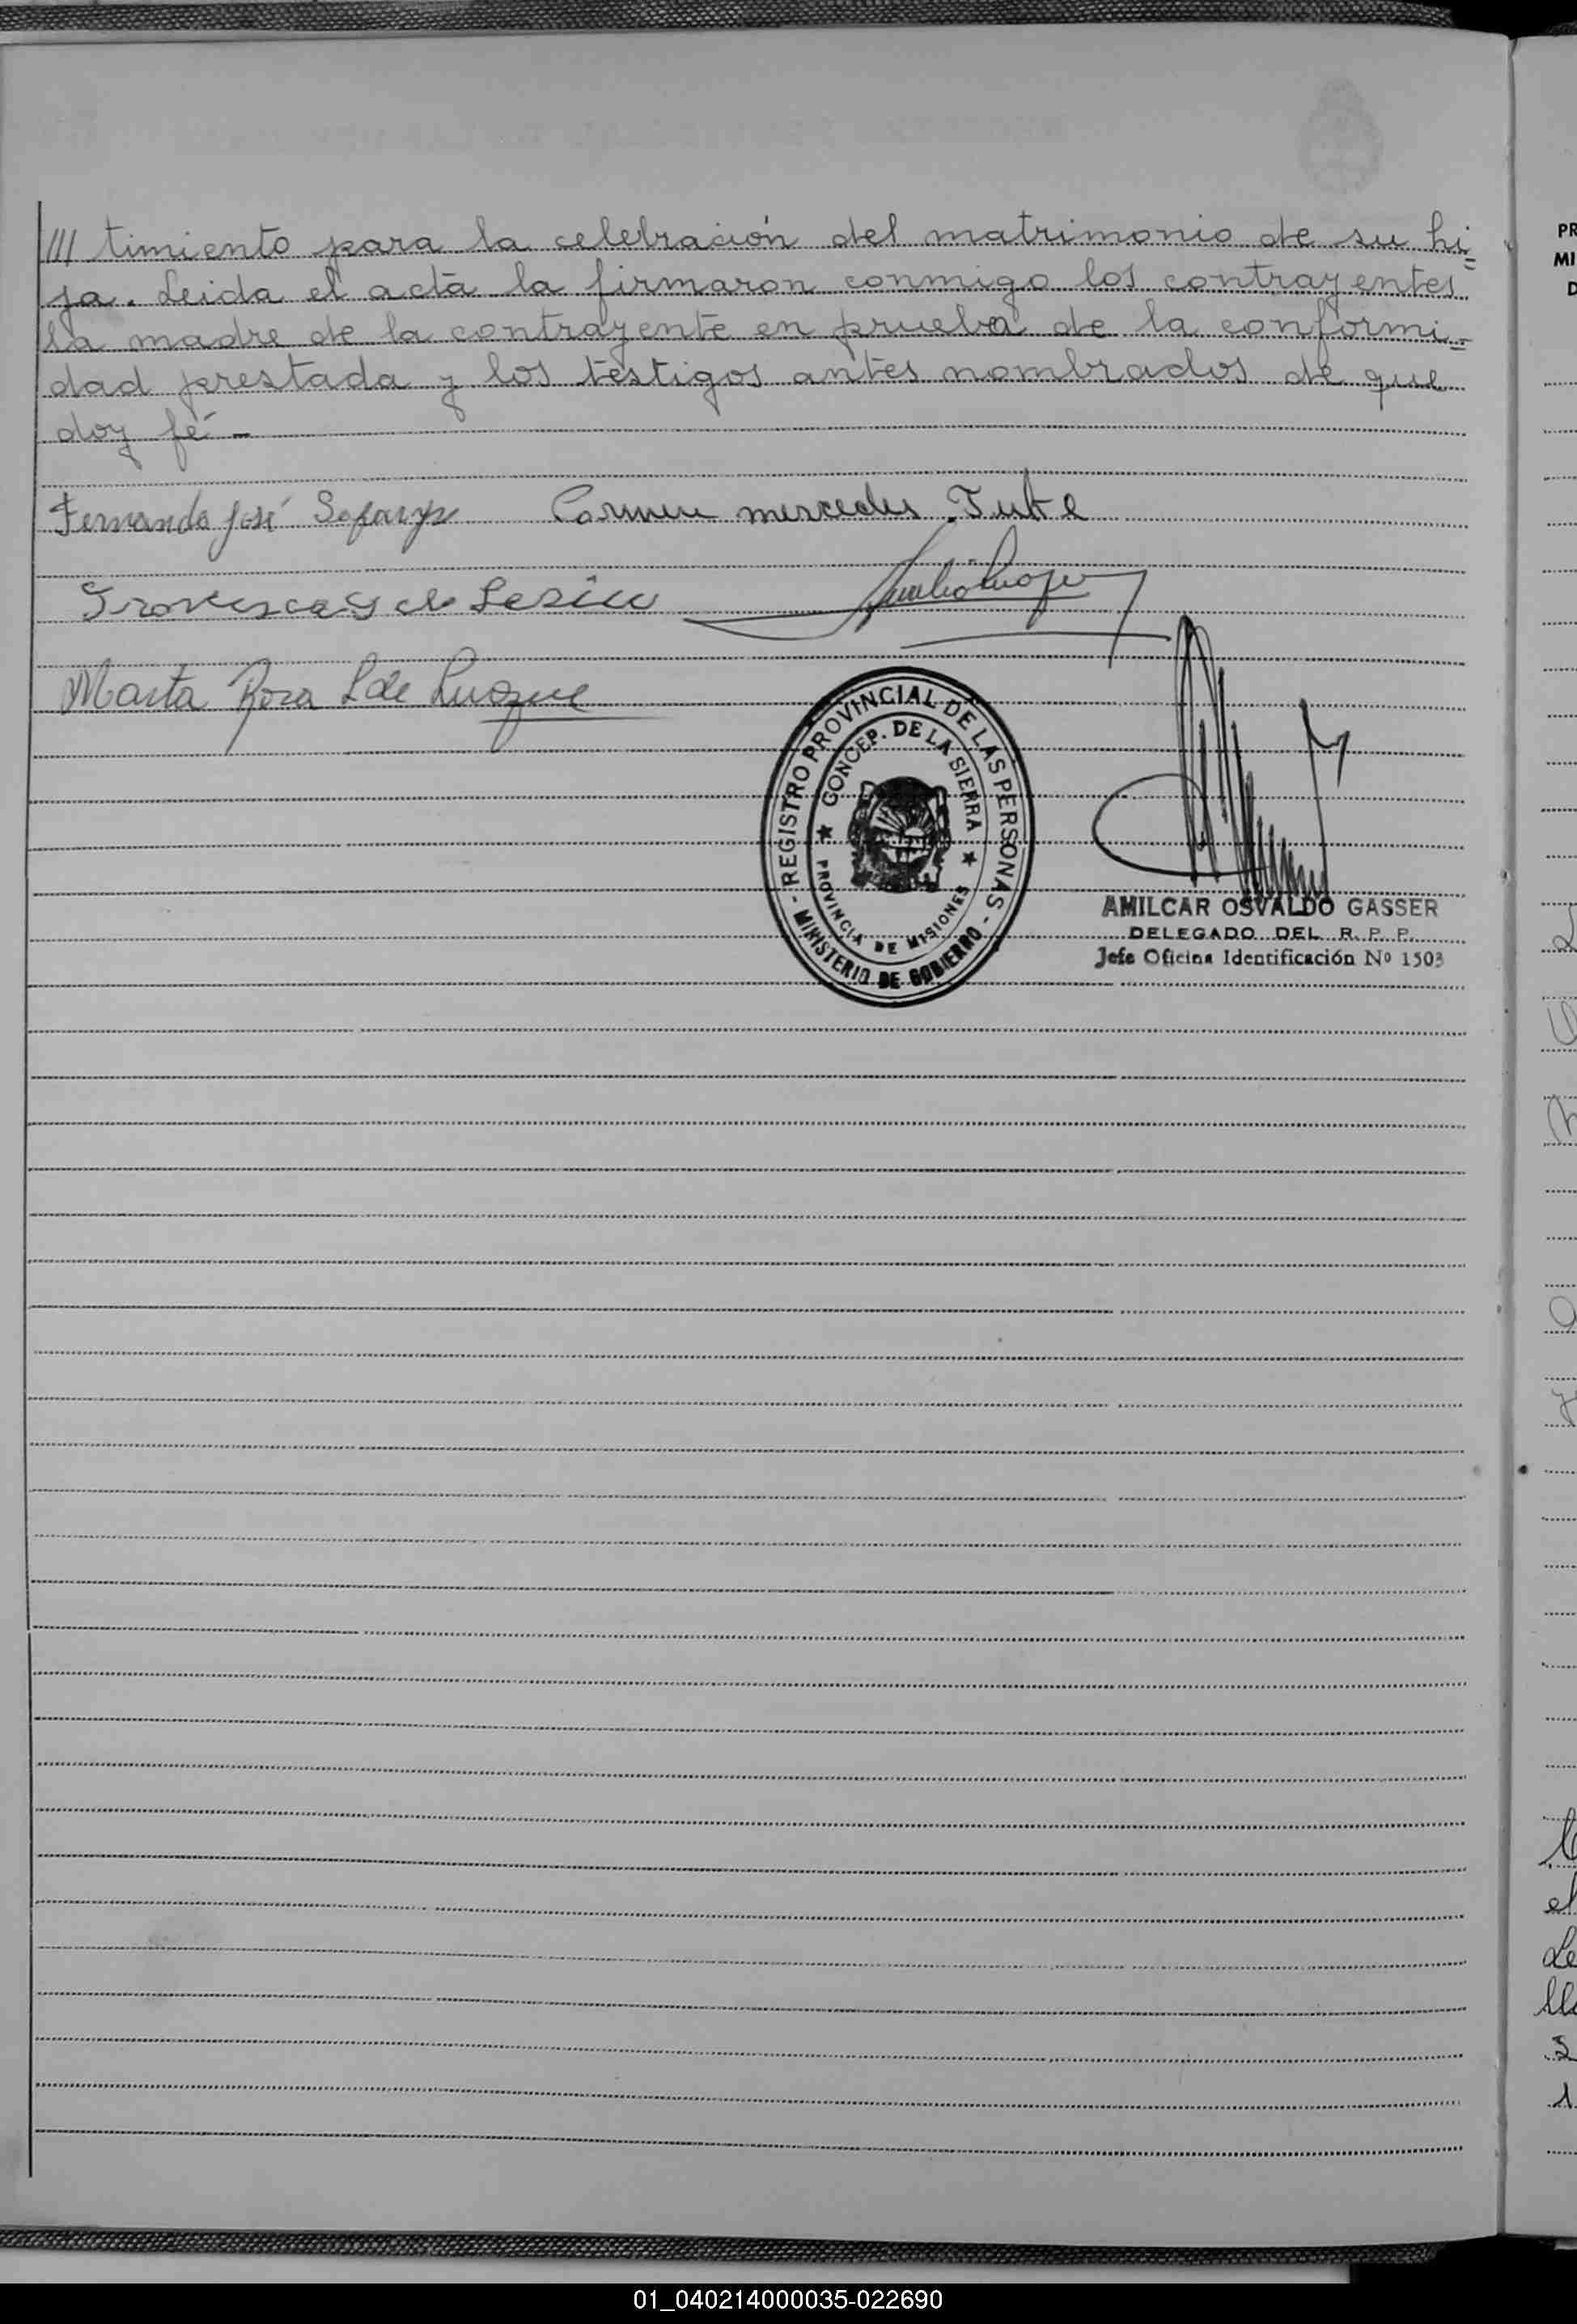 /// timiento para la celebración del matrimonio de su hi=
ja. Leida el acta la firmaron conmigo los contrayentes
la madre de la contrayente en prueba de la conformi=
dad prestada y los testigos antes nombrados de que
doy fé -
Fernando José Carmen mercedes
Marta Rosa L de Luque
- REGISTRO PROVINCIAL DE LAS PERSONAS -
MINISTERIO DE GOBIERNO
★ CONCEP. DE LA SIERRA ★
PROVINCIA DE MISIONES
AMILCAR OSVALDO GASSER
DELEGADO DEL R. P. P.
Jefe Oficina Identificación Nº 1503
PR
MI
D
el
Le
01_040214000035-022690